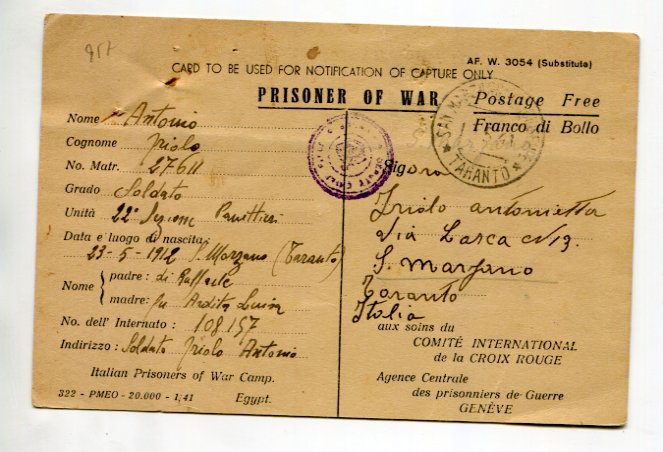 917
AF. W. 3054 (Substitute)
CARD TO BE USED FOR NOTIFICATION OF CAPTURE ONLY
PRISONER OF WAR
Postage Free
Franco di Bollo
Nome Antonio
Cognome Friolo
No. Matr. 27611
Grado Soldato
Unità 22ª Sezione Panettieri
Data e luogo di nascita:
23-5-1912 S. Marzano (Taranto)
Nome padre: di Raffaele
madre: fu Ardita Luisa
No. dell' Internato : 108157
Indirizzo: Soldato Friolo Antonio
Italian Prisoners of War Camp.
322 - PMEO - 20.000 - 1/41 Egypt.
SAN MARZANO
TARANTO
Signora
Friolo Antonietta
Via Lasca N 19
S. Marzano
Taranto
Italia
aux soins du
COMITÉ INTERNATIONAL
de la CROIX ROUGE
Agence Centrale
des prisonniers de Guerre
GENÈVE